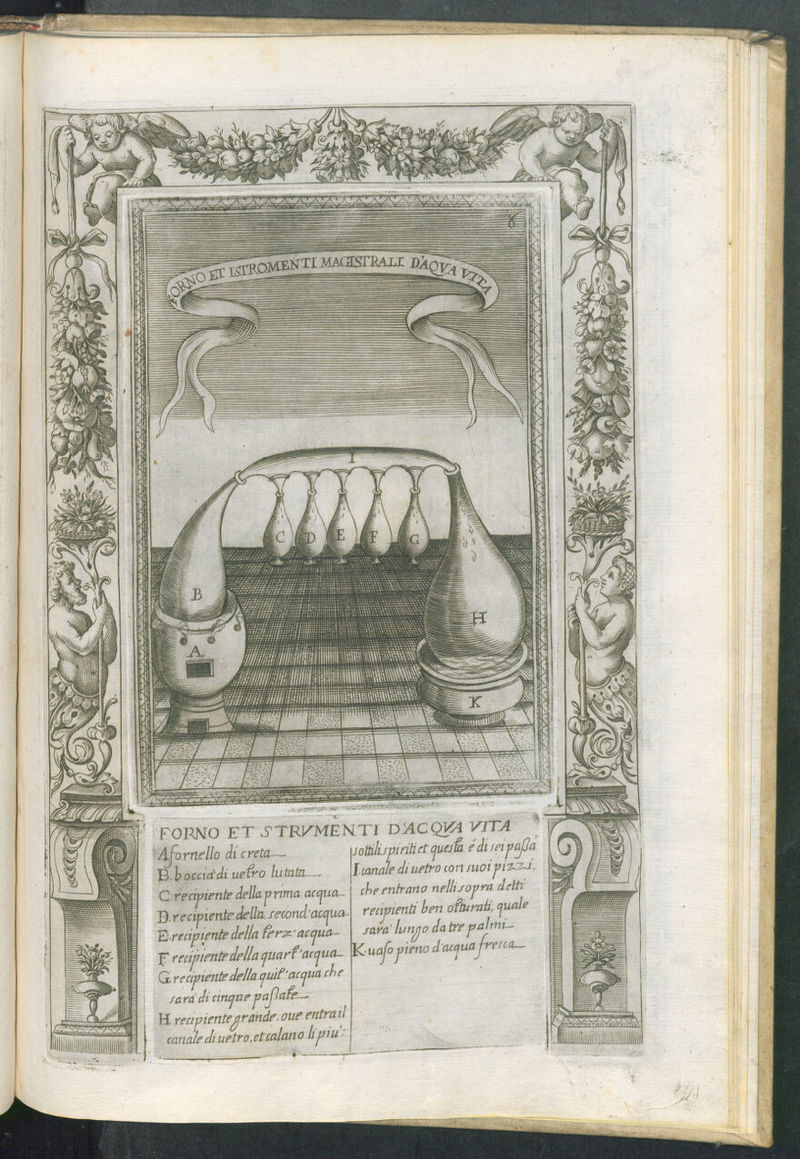 8
FORNO ET ISTROMENTI MAGISTRALI D'AQVA VITA
I
C D E F G
B
H
A
K
FORNO ET STRVMENTI D'ACQVA VITA
A fornello di creta
B. boccia di uetro lutata
C. recipiente della prima acqua
D. recipiente della second'acqua
E. recipiente della terz'acqua
F recipiente della quart'acqua
G. recipiente della quit'acqua che
sara di cinque paßate
H recipiente grande. oue entra il
canale di uetro, et calano li piu
sottili spiriti et questa è di sei paßa
I. canale di uetro con suoi pizzi,
che entrano nelli sopra detti
recipienti ben otturati, quale
sara lungo da tre palmi
K. uaso pieno d'acqua fresca